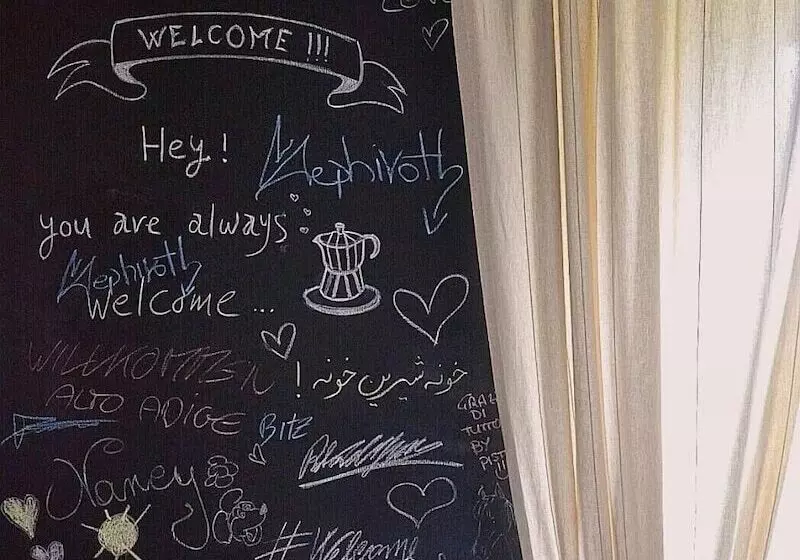 WELCOME !!!
Hey!
Nephiroth
you are always
Nephiroth
Welcome ...
WILLKOMMEN
خونه شیرین خونه !
ALTO ADIGE
BITZ
GRAZ
DI
TUTTO
BY
Nancy
#Welcome